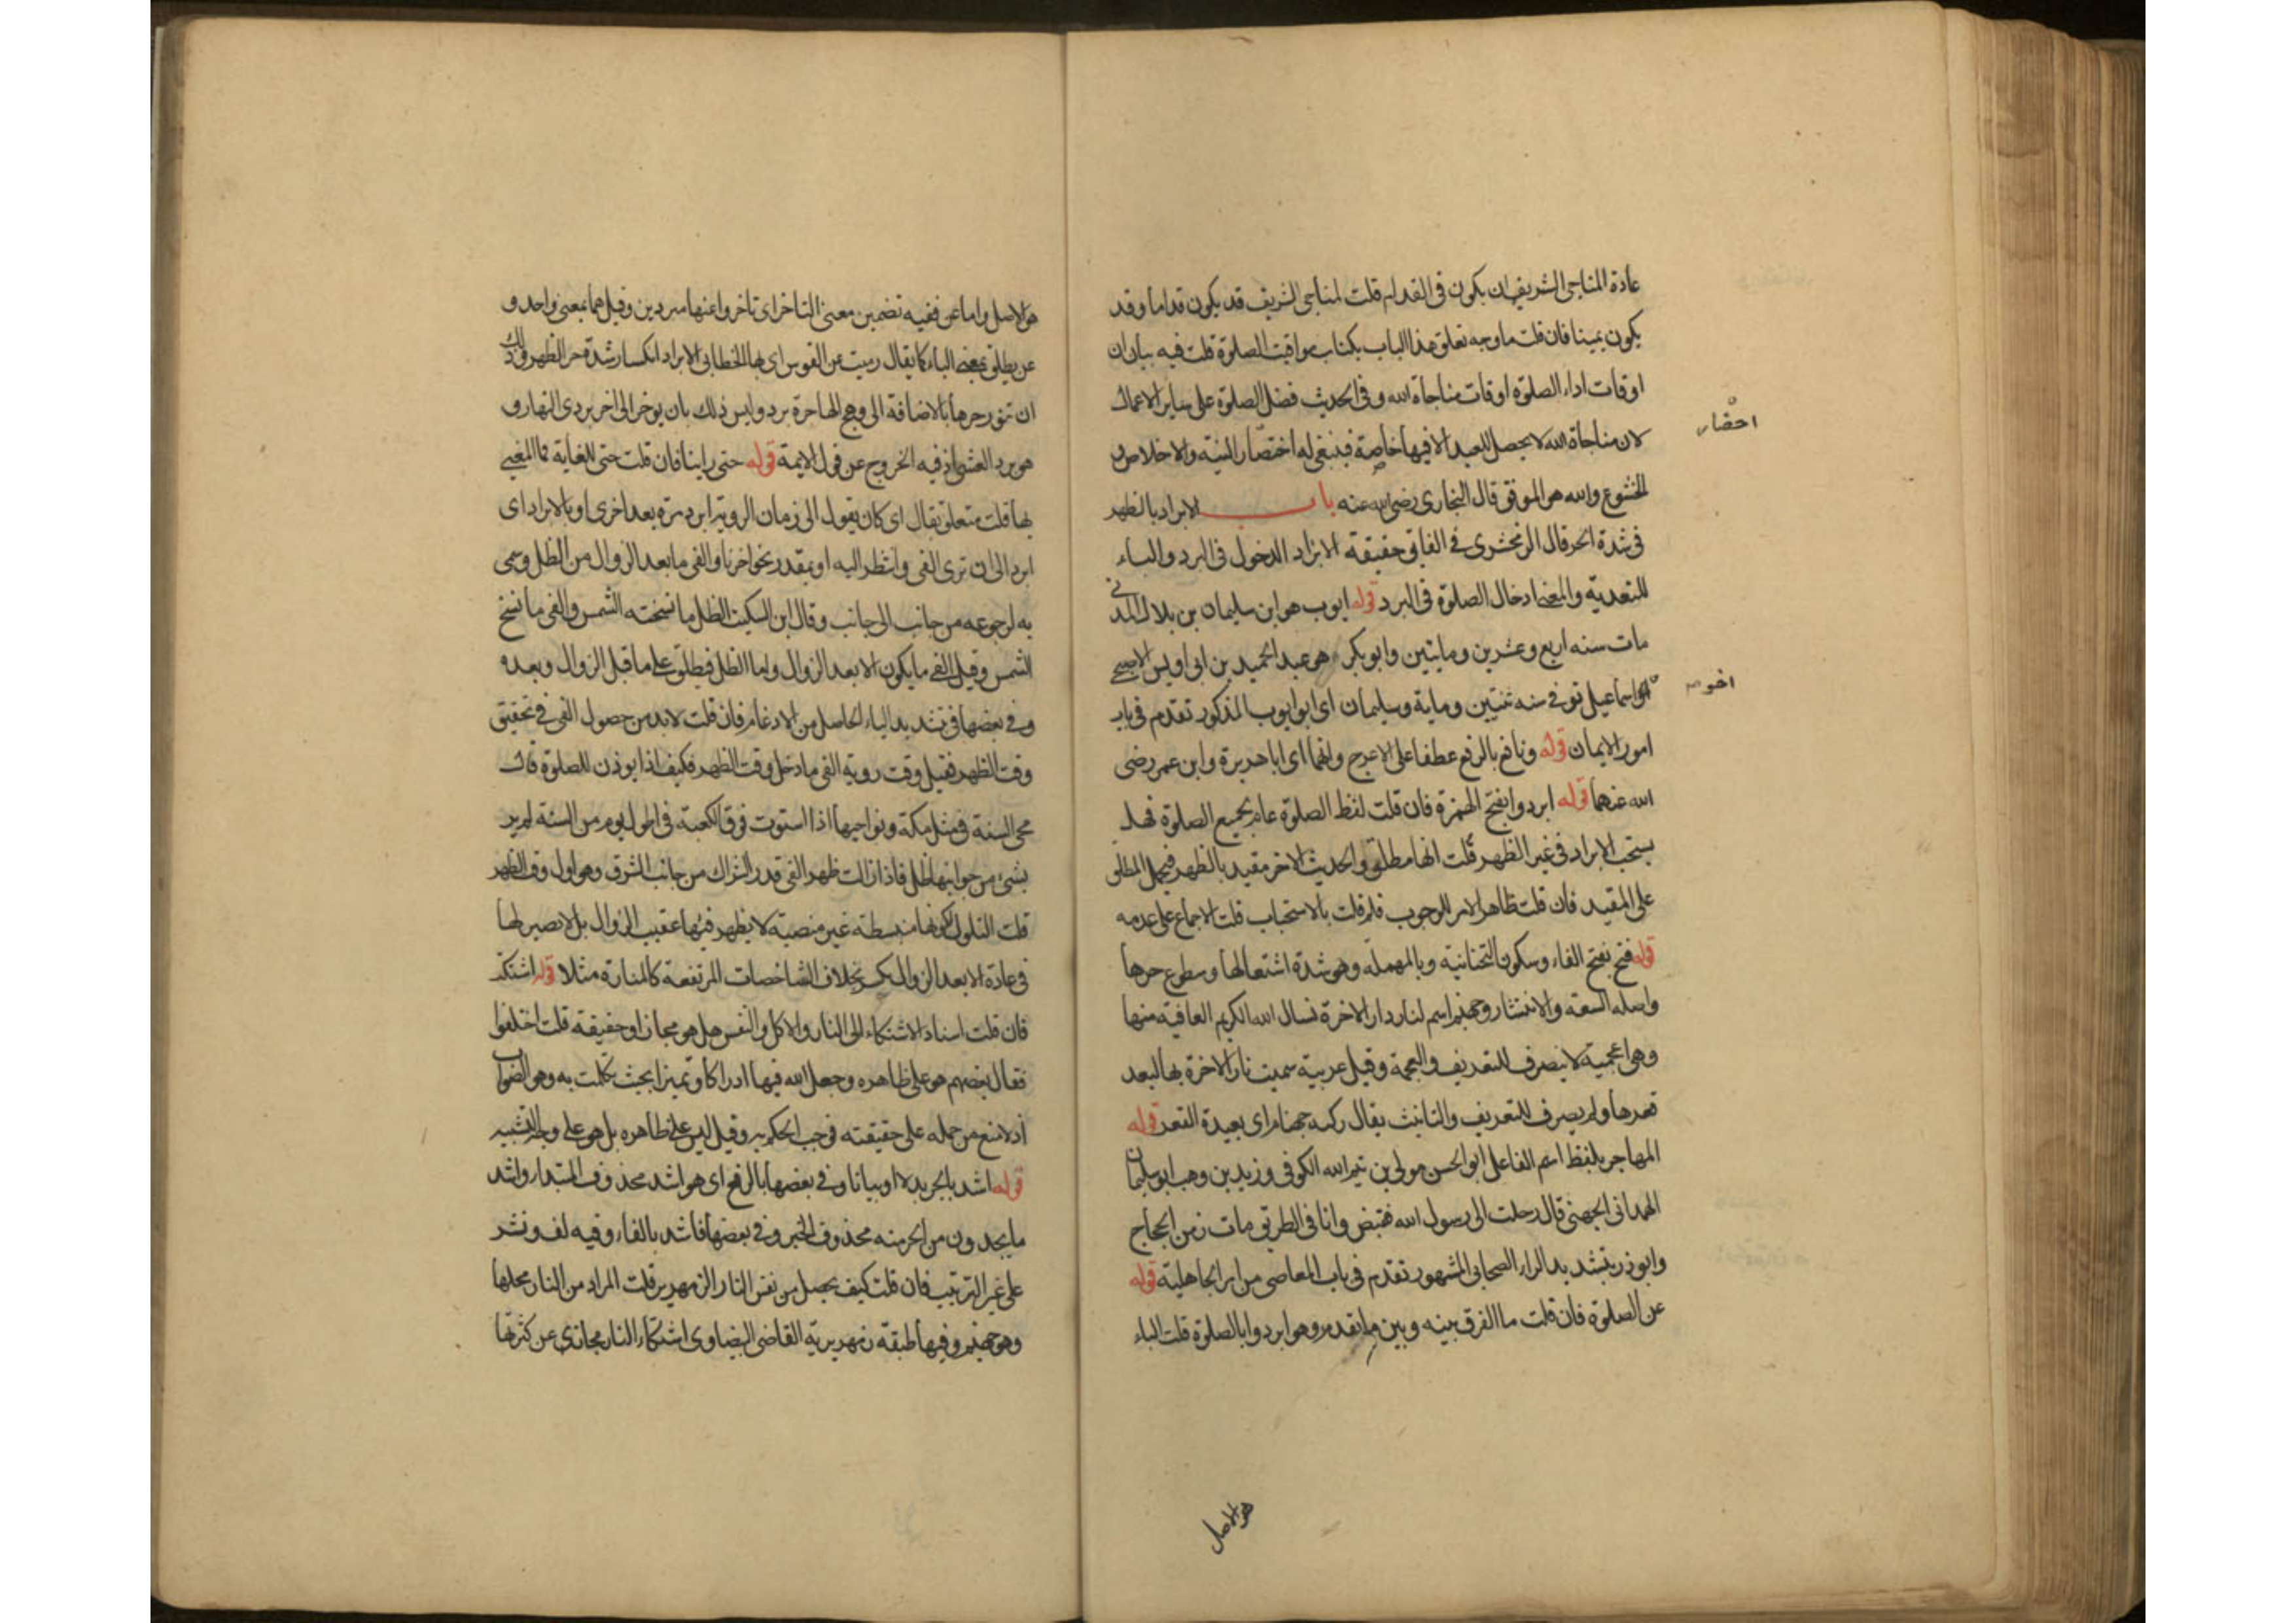 عادة المناجى الشريف ان يكون فى القدام قلت المناجى الشريف قد يكون قداما وقد
يكون يمينا فان قلت ما وجه تعلق هذا الباب بكتاب مواقيت الصلوة قلت فيه بيان ان
اوقات اداء الصلوة اوقات مناجاة الله وفى الحديث فضل الصلوة على ساير الاعمال
لان مناجاة الله لا يحصل للعبد الا فيها خاصة فينبغى له اختصار النية والاخلاص و
احضار
الخشوع والله هو الموفق قال البخارى رضى الله عنه باب الابراد بالظهر
فى شدة الحر قال الزمخشرى فى الفايق حقيقة الابراد الدخول فى البرد والباء
للتعدية والمعنى ادخال الصلوة فى البرد قوله ايوب هو ابن سليمان بن بلال المدنى
مات سنه اربع وعشرين ومايتين وابو بكر هو عبد الحميد بن ابى اويس الاصبحى
اخو اسماعيل توفى سنه ثنتين وماية وسليمان اى ابو ايوب المذكور تقدم فى باب
اخو
امور الايمان قوله ونافع بالرفع عطفا على الاعرج وانهما اى ابا هريرة وابن عمر رضى
الله عنهما قوله ابردوا بفتح الهمزة فان قلت لفظ الصلوة عام بجميع الصلوة فهل
يستحب الابراد فى غير الظهر قلت انها مطلق والحديث الاخر مقيد بالظهر فيحمل المطلق
على المقيد فان قلت ظاهر الامر للوجوب فلم قلت بالاستحباب قلت الاجماع على عدمه
قوله فيح بفتح الفاء وسكون التحتانية وبالمهملة وهو شدة اشتعالها وسطوع حرها
واصله السعة والانتشار وجهنم اسم لنار دار الاخرة نسال الله الكريم العافية منها
وهى اعجمية لا ينصرف للتعريف والعجمة وقيل عربية سميت نار الاخرة بها لبعد
قعرها ولم يصرف للتعريف والتانيث يقال ركية جهنام اى بعيدة القعر قوله
المهاجر بلفظ اسم الفاعل ابو الحسن مولى بن تيم الله الكوفى وزيد بن وهب ابو سليمان
الهمدانى الجهنى قال رحلت الى رسول الله فقبض وانا فى الطريق مات زمن الحجاج
وابو ذر بتشديد الراء الصحابى المشهور تقدم فى باب المعاصى من امر الجاهلية قوله
عن الصلوة فان قلت ما الفرق بينه وبين ما تقدم وهو ابردوا بالصلوة قلت الباء
هو الاصل
هو الاصل واما عن ففيه تضمين معنى التاخر اى تاخروا عنها مبردين وقيل هما بمعنى واحد و
عن يطلق بمعنى الباء كما يقال رميت عن القوس اى بها الخطابى الابراد انكسار شدة حر الظهر وذلك
ان تنور حرها بالاضافة الى وهج الهاجرة برد وليس ذلك بان يوخر الى اخر بردى النهار و
هو برد العشى اذ فيه الخروج عن قول الايمة قوله حتى راينا فان قلت حتى للغاية فما المغيى
بها قلت متعلق بقال اى كان يقول الى زمان الروية ابرد مرة بعد اخرى او بالابراد اى
ابرد الى ان ترى الفى وانتظر اليه او بمقدر نحو اخرنا والفى ما بعد الزوال من الظل وسمى
به لرجوعه من جانب الى جانب وقال ابن السكيت الظل ما نسخته الشمس والفى ما نسخ
الشمس وقيل الفى ما يكون الا بعد الزوال واما الظل فيطلق على ما قبل الزوال وبعده
وفى بعضها فى تشديد الياء الحاصل من الادغام فان قلت لا بد من حصول الفى فى تحقيق
وقت الظهر فقيل وقت روية الفى ما دخل وقت الظهر فكيف اذا يوذن للصلوة قال
محى السنة فى مثل مكة ونواحيها اذا استوت فوق الكعبة فى اطول يوم من السنة لم ير
بشئ من جوانبها ظل فاذا زالت ظهر الفى قدر الشراك من جانب الشرق وهو اول وقت الظهر
قلت التلول لكونها منبسطة غير منصبة لا يظهر فيها عقيب الزوال بل لا تصير لها
فى عادة الا بعد الزوال بخلاف الشاخصات المرتفعة كالمنارة مثلا قوله اشتكت
فان قلت اسناد الاشتكاء الى النار والاكل والنفس هل هو مجاز او حقيقة قلت اختلفوا
فقال بعضهم هو على ظاهره وجعل الله فيها ادراكا وتميزا بحيث تكلمت به وهو الصواب
اذ لا منع من حمله على حقيقته فوجب الحكم به وقيل ليس على ظاهره بل هو على وجه التشبيه
قوله اشد بالجر بدلا او بيانا وفى بعضها بالرفع اى هو اشد محذوف المبتدا او اشد
ما يجدون من الحر منه محذوف الخبر وفى بعضها فاشد بالفاء وفيه لف ونشر
على غير الترتيب فان قلت كيف يحصل من نفس النار الزمهرير قلت المراد من النار محلها
وهو جهنم وفيها طبقة زمهريرية القاضى البيضاوى اشتكاء النار مجازى عن كثرتها